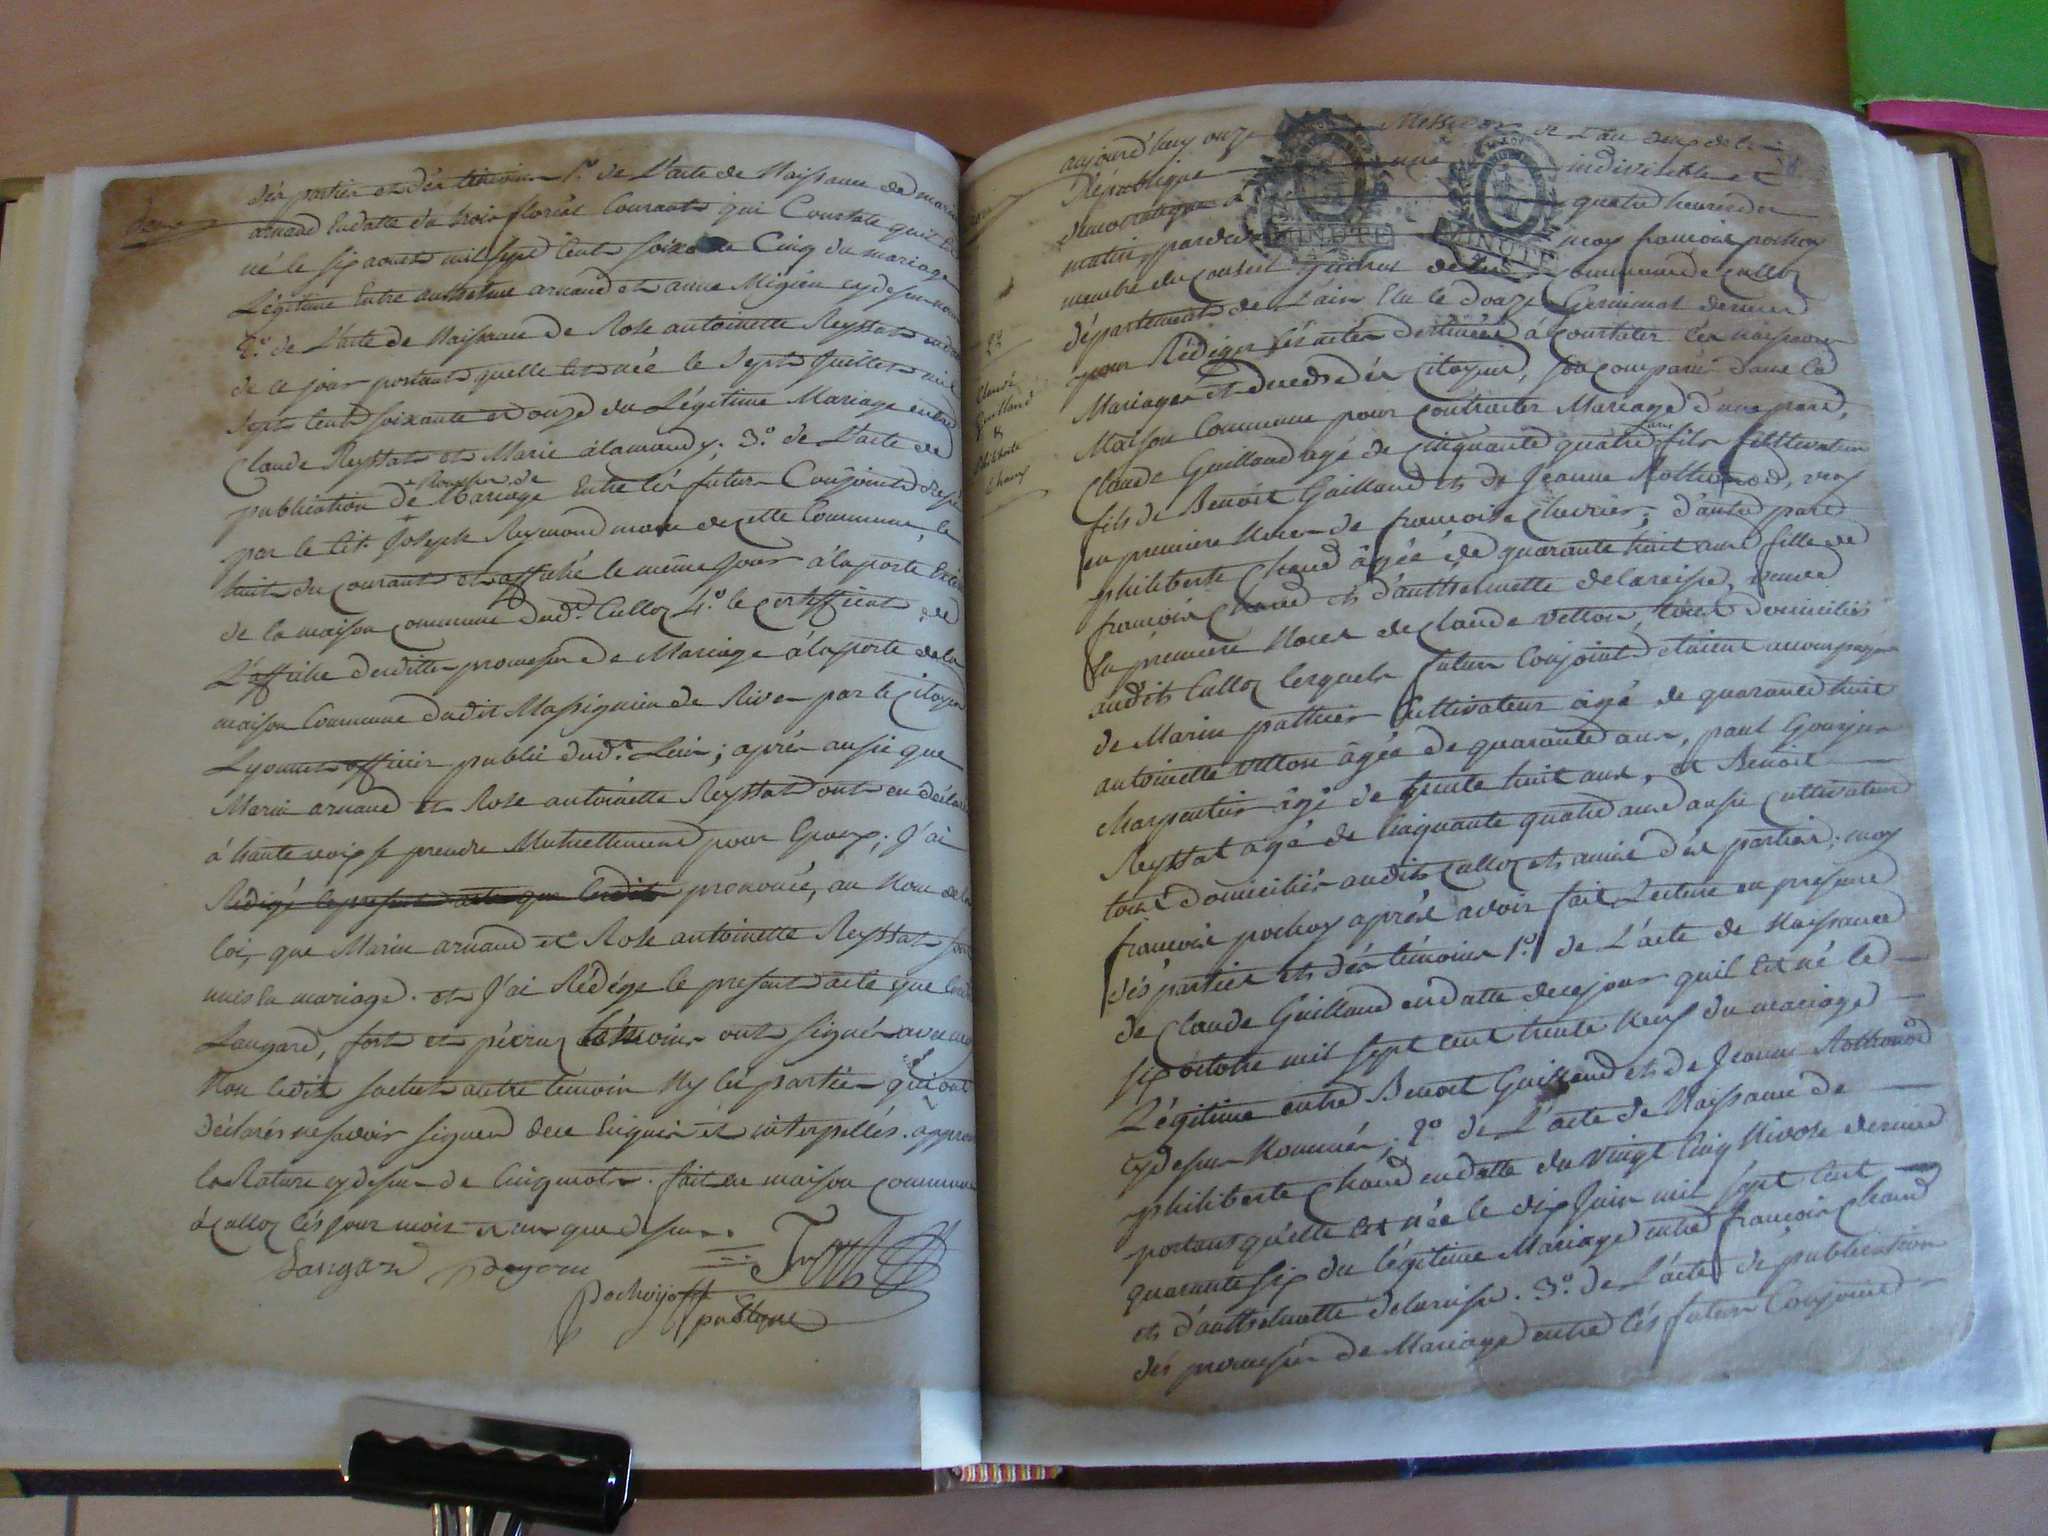 dés parties et dés témoins 1.º de L'acte de Naissance de marin
arnaud En datte du trois floréal Courant qui Constate qu'il Est
né le six aoust mil sept Cent soixante Cinq du mariage
Légitime Entre anthelme arnaud et anne Migieu cy dessus nommés
2.º de L'acte de Naissance de Rose antoinette Reystat en datte
de ce jour portant quelle Est née le Sept Juillet mil
Sept Cent soixante et onze du Légitime Mariage entre
Claude Reystat et Marie alamand; 3.º de L'acte de
promesse de
publication de Mariage Entre les futurs Conjoints dressé
par le Cit. Joseph Reymond maire de cette Commune le
huit du courant et affiché le même jour à la porte
de la maison commune dud. Culloz 4.º le certifficat de
L'affiche desdittes promesses de Mariage à la porte de la
maison Commune dudit Massignieu de Rives par le Citoyen
Lyonnet officier public dud.t Lieu; après aussie que
Marin arnaud et Rose antoinette Reystat ont eu déclaré
à haute voix se prendre Mutuellement pour Epoux, J'ai
Rédigé le présent acte que lesdits prononcé, au Nom de la
loi, que Marin arnaud et Rose antoinette Reystat sont
unis En mariage. et J'ai Rédégé le présent acte que lesdits
Langard, fort et témoins ont signés avec moy
Non ledit autre témoin Ny les parties qui ont
déclarés ne savoir signer de ce Enquis et interpellés. approuvé
la Rature cy dessus de Cinq mots. fait en maison commune
à Culloz lés jour mois et an que dessus.
Langard
Pochoy off
publique
aujourd'huy onze Messidor de L'an deux de la
République une indivisible et
démocratique à quatre heures du
matin, pardevant moy francois pochoy
membre du conseil Général de la Commune de Culloz
département de L'ain Elu le douze Germinal dernier
pour Rédiger lés actes destinées à Constater les naissances
Mariages et decedz dés Citoyens, son comparus dans la
Maison Commune pour Contracter Mariage d'une part,
Claude Guilland agé de cinquante quatre ans fils Cultivateur
fils de Benoit Guilland et de Jeanne Rothonod, veuf
en premiere Noces de francoise Chevrier; d'autre part
philiberte Chand âgée de quarante huit ans fille de
francois Chand et d'anthelmette delaraisse, veuve
En première Noces de Claude Vettou, tous domiciliés
audit Culloz lesquels futurs Conjoints étaient accompagnés
de Marin pathier Cultivateur agé de quarante huit
antoinette Vettou âgée de quarante ans, paul Goujon
Charpentier âgé de trente huit ans, et Benoit
Reystat agé de Cinquante quatre ans aussi Cultivateur
tous domiciliés audit Culloz et amis dés parties; moy
francois pochoy après avoir fait Lecture en présence
dés parties et dés témoins 1.º de L'acte de Naissance
de Claude Guilland en datte de ce jour qu'il Est né le
six octobre mil sept cent trente Neuf du mariage
Légitime entre Benoit Guilland et de Jeanne Rothonod
cy dessus Nommés; 2.º de L'acte de Naissance de
philiberte Chand en datte du Vingt Cinq Nivose dernier
portant qu'elle Est née le dix Juin mil Sept Cent
quarante six du légitime Mariage entre francois Chand
et d'anthelmette delaraisse. 3.º de L'acte de publication
dés promesses de Mariage entre lés futurs Conjoints
22
Claude
Guilland
&
Philiberte
Chanez
MINUTE
MINUTE